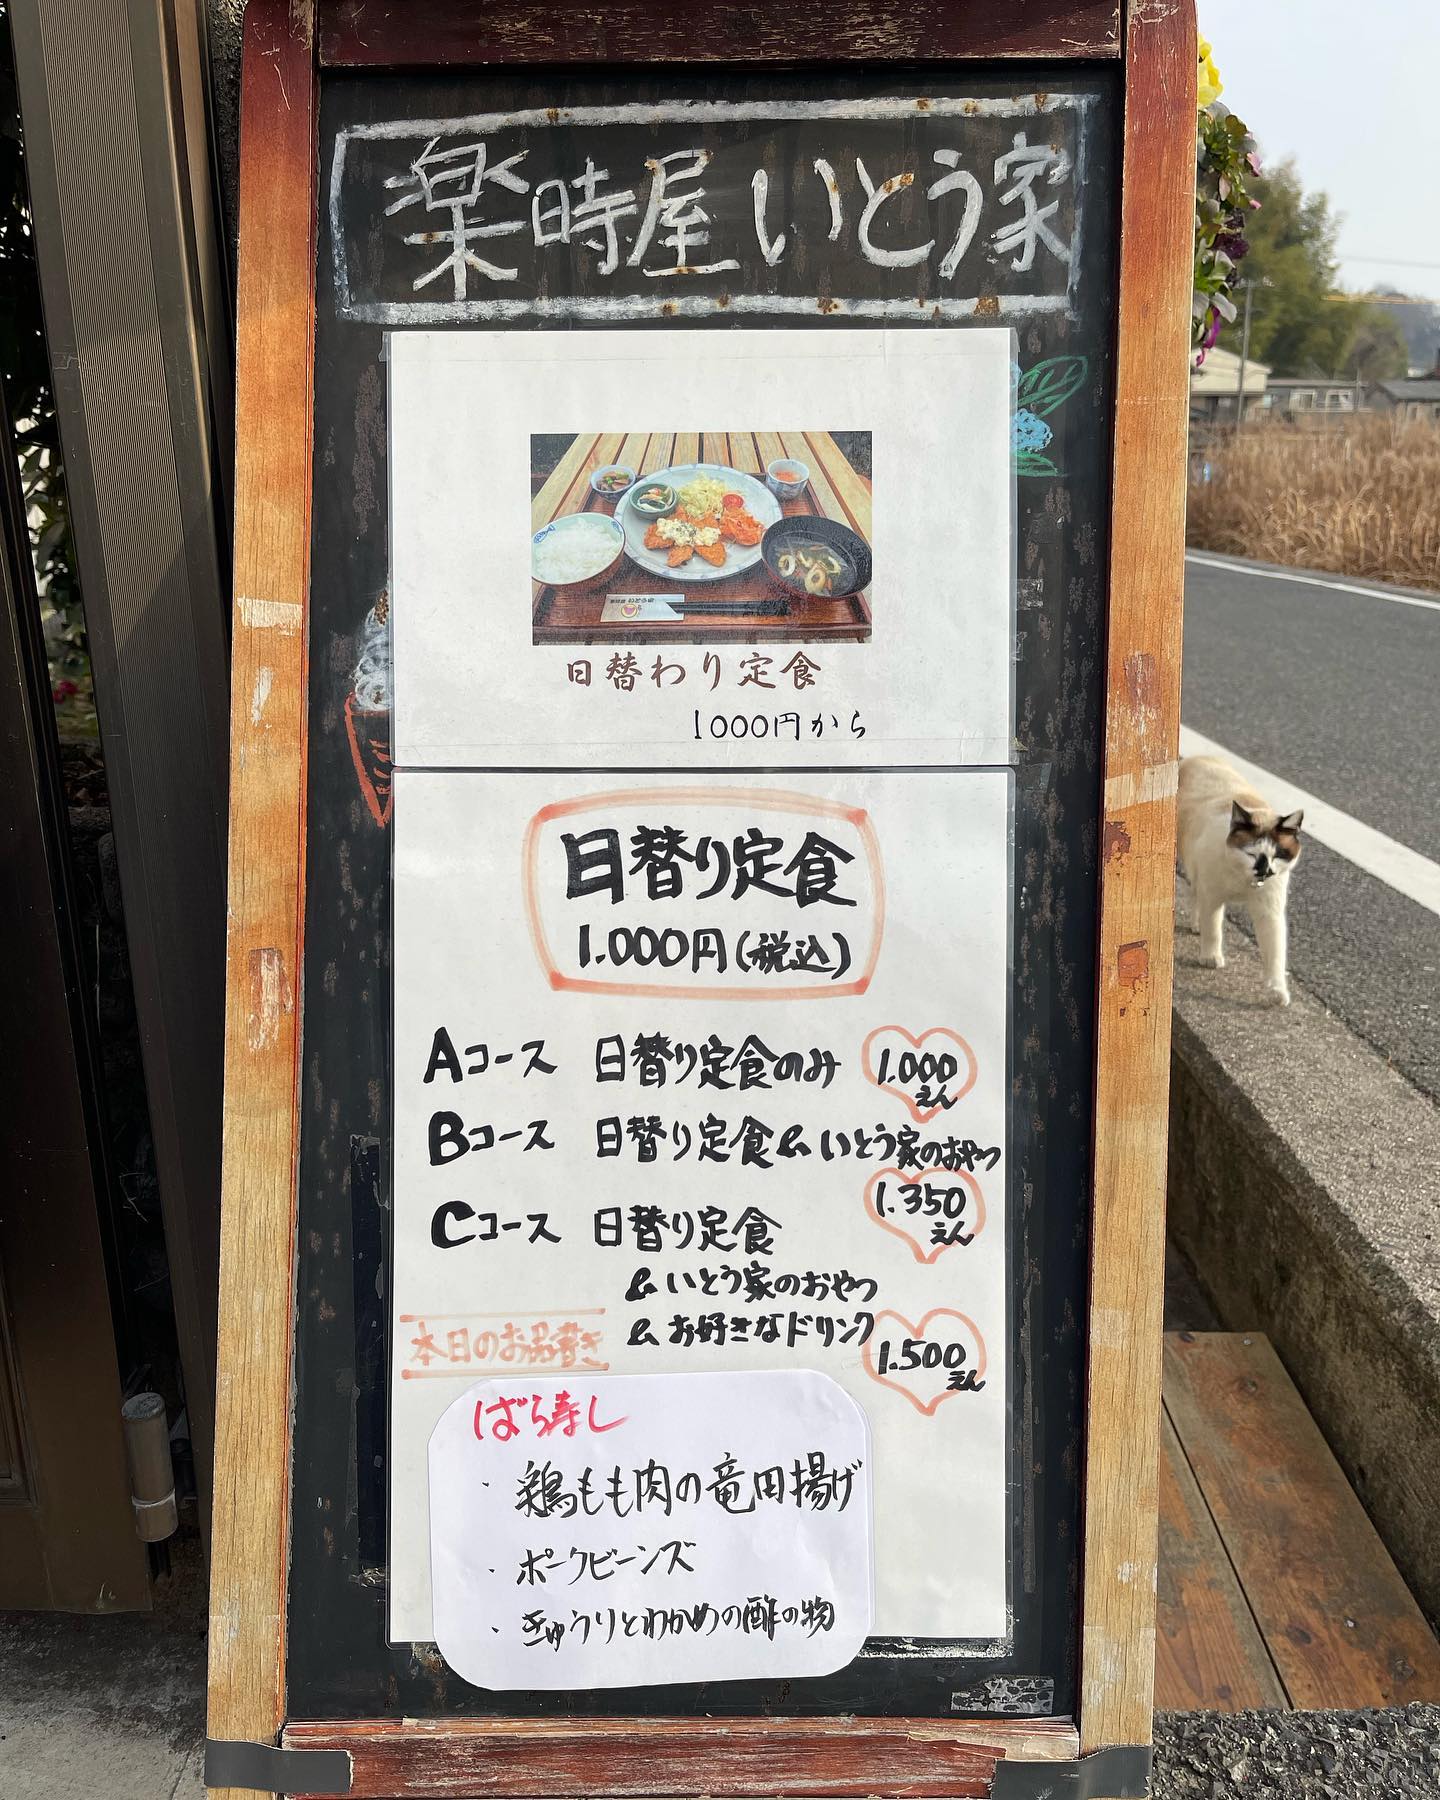 楽時屋 いとう家
日替わり定食
1000円から
日替り定食
1.000円(税込)
Aコース 日替り定食のみ 1.000えん
Bコース 日替り定食 & いとう家のおやつ
1.350えん
Cコース 日替り定食
& いとう家のおやつ
& お好きなドリンク
1.500えん
本日のお品書き
ばら寿し
・鶏もも肉の竜田揚げ
・ポークビーンズ
・きゅうりとわかめの酢の物